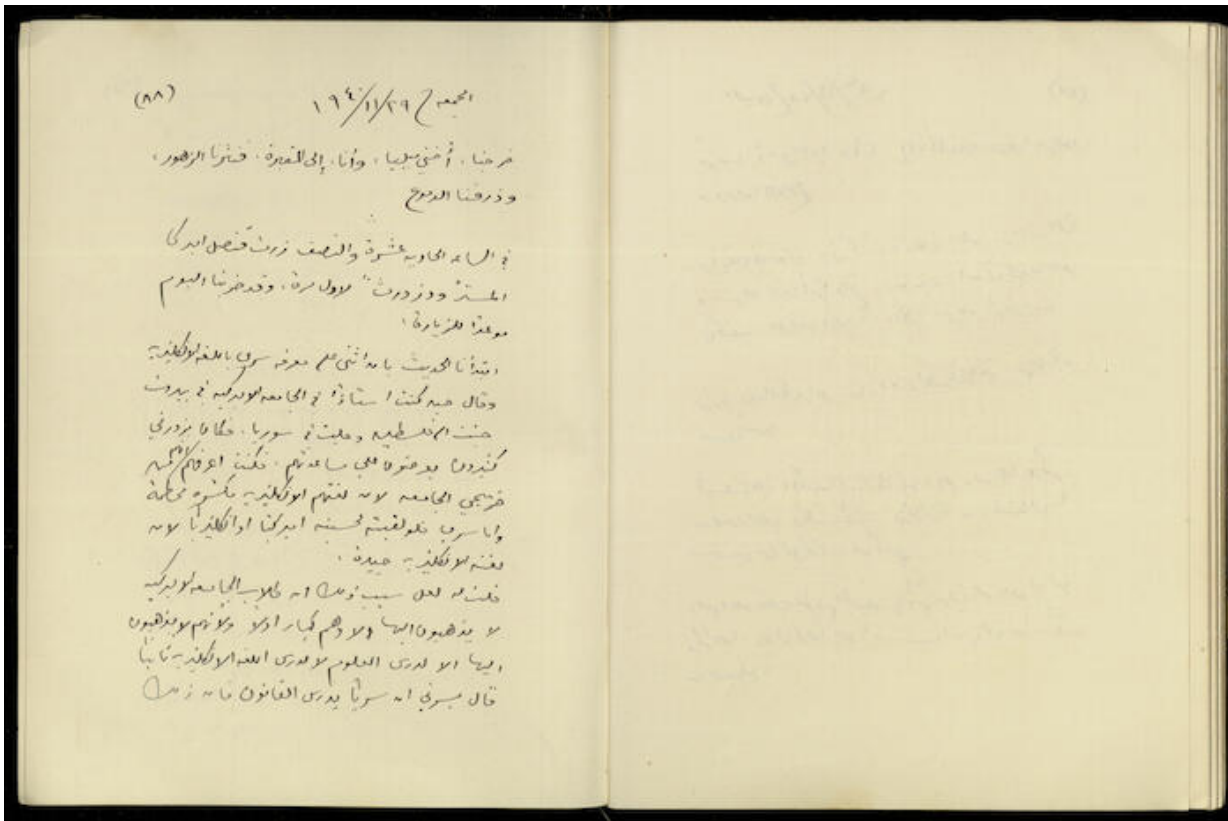 (٨٨)
الجمعه ٢٩/١١/١٩٤٠
خرجنا، أختي ميليا، وأنا، إلى المقبرة. فنثرنا الزهور،
وذرفنا الدموع
في الساعه الحاديه عشرة والنصف زرت قنصل اميركا
المستر وودزورث" لاول مرة، وقد ضربنا اليوم
موعدًا للزيارة.
ابتدأنا الحديث بان اثنى على معرفه سري باللغه الانكليزيه
وقال حين كنت استاذًا في الجامعه الاميركيه في بيروت
جئت الى فلسطين وجلت في سوريا، فكان يزورني
كثيرون يعرضون علي مساعدتهم. فكنت اعرف انهم من
خريجي الجامعه لان لغتهم الانكليزيه مكسره محطمة
واما سري فلو لقيته لحسبته اميركيًا او انكليزيًا لان
لغته الانكليزيه جيدة.
قلت له لعل سبب ذلك ان طلاب الجامعه الاميركيه
لا يذهبون اليها الا وهم كبار اولًا ولانهم لا يذهبون
اليها الا لدرس العلوم لا لدرس اللغه الانكليزيه ثانيًا
قال يسرني ان سريًا يدرس القانون فان ذلك